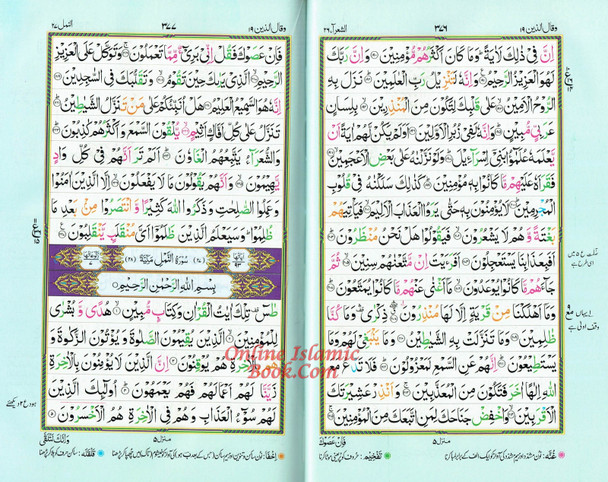 وقال الذين ١٩
٣٧٦
الشعرآء ٢٦
اِنَّ فِیْ ذٰلِكَ لَاٰیَةً ؕ وَمَا كَانَ اَكْثَرُهُمْ مُّؤْمِنِیْنَ ۝ وَاِنَّ رَبَّكَ
لَهُوَ الْعَزِیْزُ الرَّحِیْمُ ۝ وَاِنَّهٗ لَتَنْزِیْلُ رَبِّ الْعٰلَمِیْنَ ۝ نَزَلَ بِهِ
الرُّوْحُ الْاَمِیْنُ ۝ عَلٰی قَلْبِكَ لِتَكُوْنَ مِنَ الْمُنْذِرِیْنَ ۝ بِلِسَانٍ
عَرَبِیٍّ مُّبِیْنٍ ۝ وَاِنَّهٗ لَفِیْ زُبُرِ الْاَوَّلِیْنَ ۝ اَوَلَمْ یَكُنْ لَّهُمْ اٰیَةً اَنْ
یَّعْلَمَهٗ عُلَمٰٓؤُا بَنِیْۤ اِسْرَآءِیْلَ ۝ وَلَوْ نَزَّلْنٰهُ عَلٰی بَعْضِ الْاَعْجَمِیْنَ ۝
فَقَرَاَهٗ عَلَیْهِمْ مَّا كَانُوْا بِهٖ مُؤْمِنِیْنَ ۝ كَذٰلِكَ سَلَكْنٰهُ فِیْ قُلُوْبِ
الْمُجْرِمِیْنَ ۝ لَا یُؤْمِنُوْنَ بِهٖ حَتّٰی یَرَوُا الْعَذَابَ الْاَلِیْمَ ۝ فَیَاْتِیَهُمْ
بَغْتَةً وَّهُمْ لَا یَشْعُرُوْنَ ۝ فَیَقُوْلُوْا هَلْ نَحْنُ مُنْظَرُوْنَ ۝
اَفَبِعَذَابِنَا یَسْتَعْجِلُوْنَ ۝ اَفَرَءَیْتَ اِنْ مَّتَّعْنٰهُمْ سِنِیْنَ ۝ ثُمَّ
جَآءَهُمْ مَّا كَانُوْا یُوْعَدُوْنَ ۝ مَاۤ اَغْنٰی عَنْهُمْ مَّا كَانُوْا یُمَتَّعُوْنَ ۝
وَمَاۤ اَهْلَكْنَا مِنْ قَرْیَةٍ اِلَّا لَهَا مُنْذِرُوْنَ ۝ ذِكْرٰی ۛ وَمَا كُنَّا
ظٰلِمِیْنَ ۝ وَمَا تَنَزَّلَتْ بِهِ الشَّیٰطِیْنُ ۝ وَمَا یَنْۢبَغِیْ لَهُمْ وَمَا
یَسْتَطِیْعُوْنَ ۝ اِنَّهُمْ عَنِ السَّمْعِ لَمَعْزُوْلُوْنَ ۝ فَلَا تَدْعُ مَعَ
اللّٰهِ اِلٰهًا اٰخَرَ فَتَكُوْنَ مِنَ الْمُعَذَّبِیْنَ ۝ وَاَنْذِرْ عَشِیْرَتَكَ
الْاَقْرَبِیْنَ ۝ وَاخْفِضْ جَنَاحَكَ لِمَنِ اتَّبَعَكَ مِنَ الْمُؤْمِنِیْنَ ۝
منزل ٥
فَاِنْ عَصَوْكَ
وقال الذين ١٩
٣٧٧
النمل ٢٧
فَاِنْ عَصَوْكَ فَقُلْ اِنِّیْ بَرِیْٓءٌ مِّمَّا تَعْمَلُوْنَ ۝ وَتَوَكَّلْ عَلَی الْعَزِیْزِ
الرَّحِیْمِ ۝ الَّذِیْ یَرٰىكَ حِیْنَ تَقُوْمُ ۝ وَتَقَلُّبَكَ فِی السّٰجِدِیْنَ ۝
اِنَّهٗ هُوَ السَّمِیْعُ الْعَلِیْمُ ۝ هَلْ اُنَبِّئُكُمْ عَلٰی مَنْ تَنَزَّلُ الشَّیٰطِیْنُ ۝
تَنَزَّلُ عَلٰی كُلِّ اَفَّاكٍ اَثِیْمٍ ۝ یُّلْقُوْنَ السَّمْعَ وَاَكْثَرُهُمْ كٰذِبُوْنَ ۝
وَالشُّعَرَآءُ یَتَّبِعُهُمُ الْغَاوٗنَ ۝ اَلَمْ تَرَ اَنَّهُمْ فِیْ كُلِّ وَادٍ
یَّهِیْمُوْنَ ۝ وَاَنَّهُمْ یَقُوْلُوْنَ مَا لَا یَفْعَلُوْنَ ۝ اِلَّا الَّذِیْنَ اٰمَنُوْا
وَعَمِلُوا الصّٰلِحٰتِ وَذَكَرُوا اللّٰهَ كَثِیْرًا وَّانْتَصَرُوْا مِنْۢ بَعْدِ مَا
ظُلِمُوْا ؕ وَسَیَعْلَمُ الَّذِیْنَ ظَلَمُوْۤا اَیَّ مُنْقَلَبٍ یَّنْقَلِبُوْنَ ۝
سُوْرَةُ النَّمْلِ مَكِّیَّةٌ
بِسْمِ اللّٰهِ الرَّحْمٰنِ الرَّحِیْمِ
طٰسٓ ۚ تِلْكَ اٰیٰتُ الْقُرْاٰنِ وَكِتَابٍ مُّبِیْنٍ ۝ هُدًی وَّبُشْرٰی
لِلْمُؤْمِنِیْنَ ۝ الَّذِیْنَ یُقِیْمُوْنَ الصَّلٰوةَ وَیُؤْتُوْنَ الزَّكٰوةَ وَ
هُمْ بِالْاٰخِرَةِ هُمْ یُوْقِنُوْنَ ۝ اِنَّ الَّذِیْنَ لَا یُؤْمِنُوْنَ بِالْاٰخِرَةِ
زَیَّنَّا لَهُمْ اَعْمَالَهُمْ فَهُمْ یَعْمَهُوْنَ ۝ اُولٰٓئِكَ الَّذِیْنَ
لَهُمْ سُوْٓءُ الْعَذَابِ وَهُمْ فِی الْاٰخِرَةِ هُمُ الْاَخْسَرُوْنَ ۝
منزل ٥
وَاِنَّكَ لَتُلَقَّی
Online Islamic
Book.Com